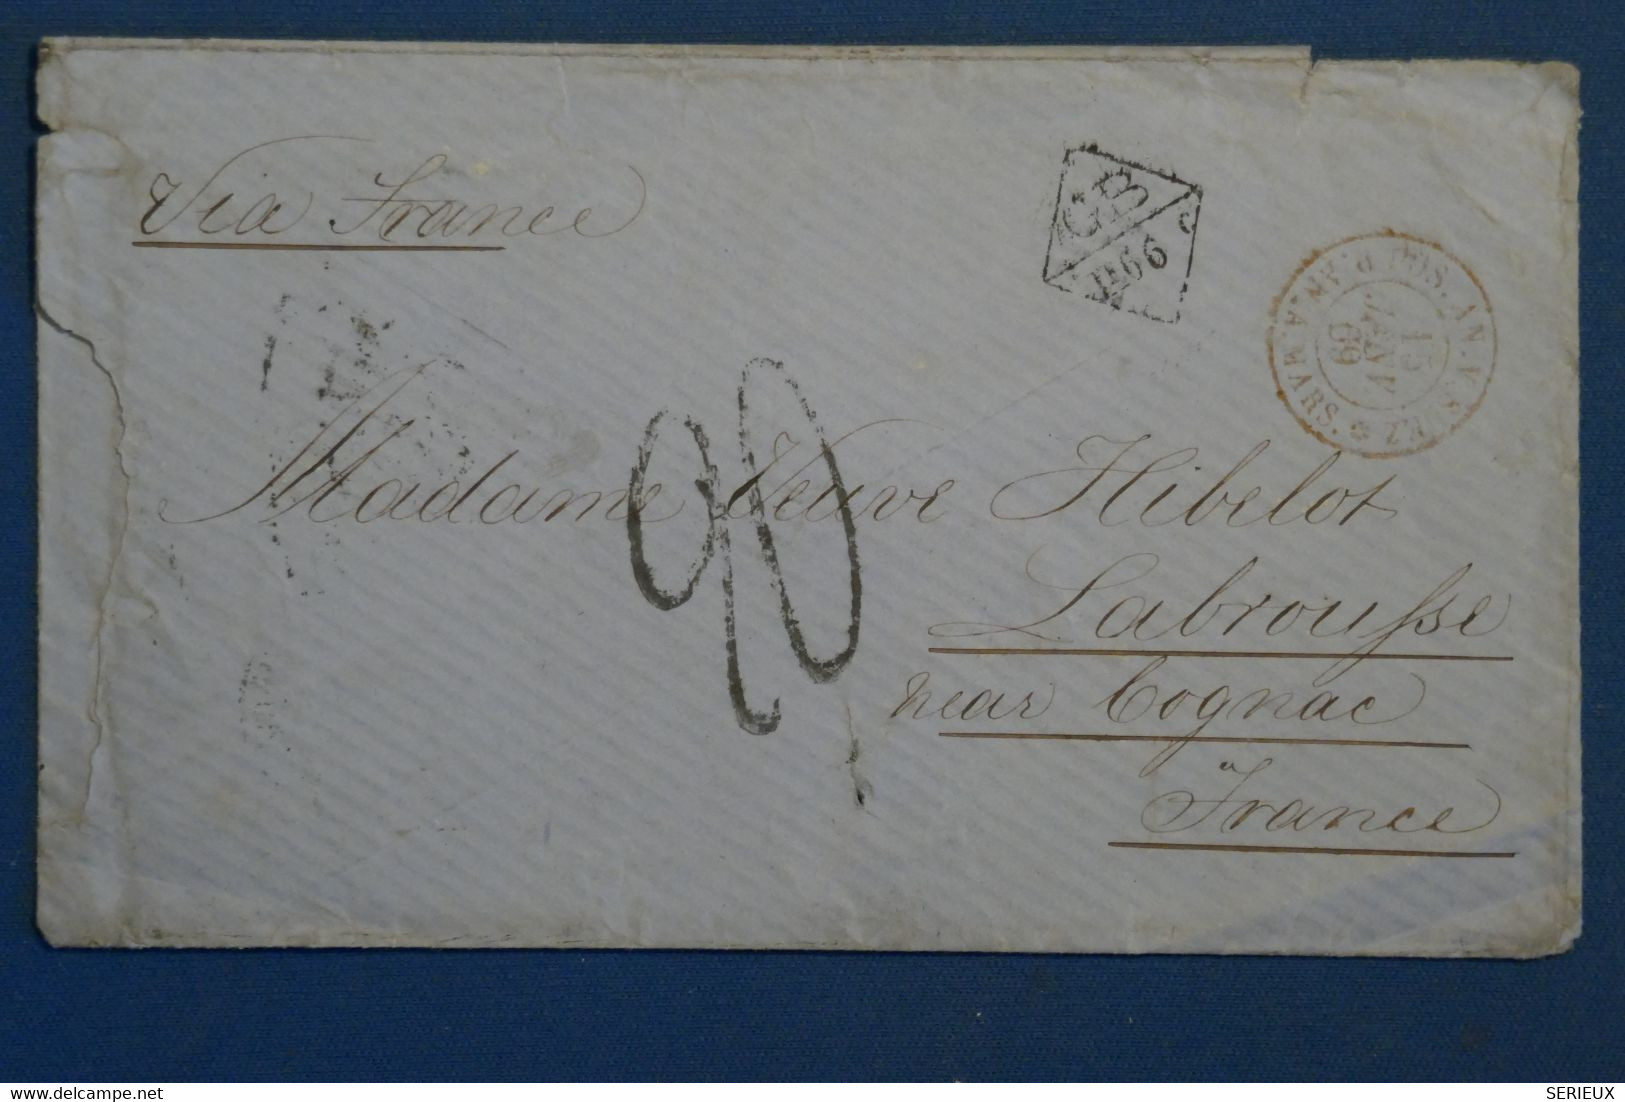 Via France
GB
1F66
90
POSS. AN. V. SUEZ A. MARS.
15
JANV
69
Madame Veuve Hibelot
Labrousse
near Cognac
France
delcampe.net
SERIEUX